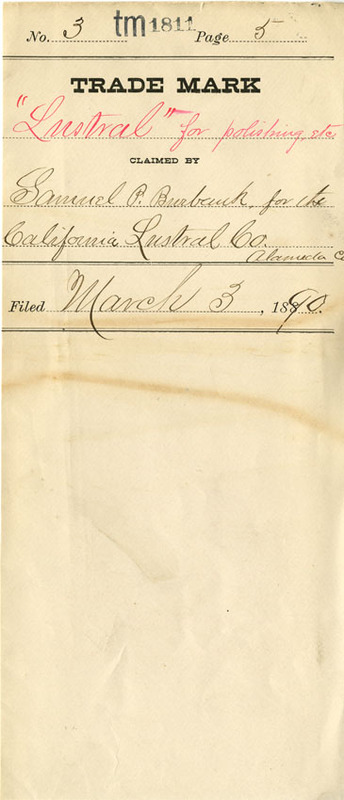 No. 3 tm 1811 Page 5
TRADE MARK
"Lustral" for polishing, etc.
CLAIMED BY
Samuel P. Burbank, for the
California Lustral Co.
Alameda C
Filed March 3, 1890.